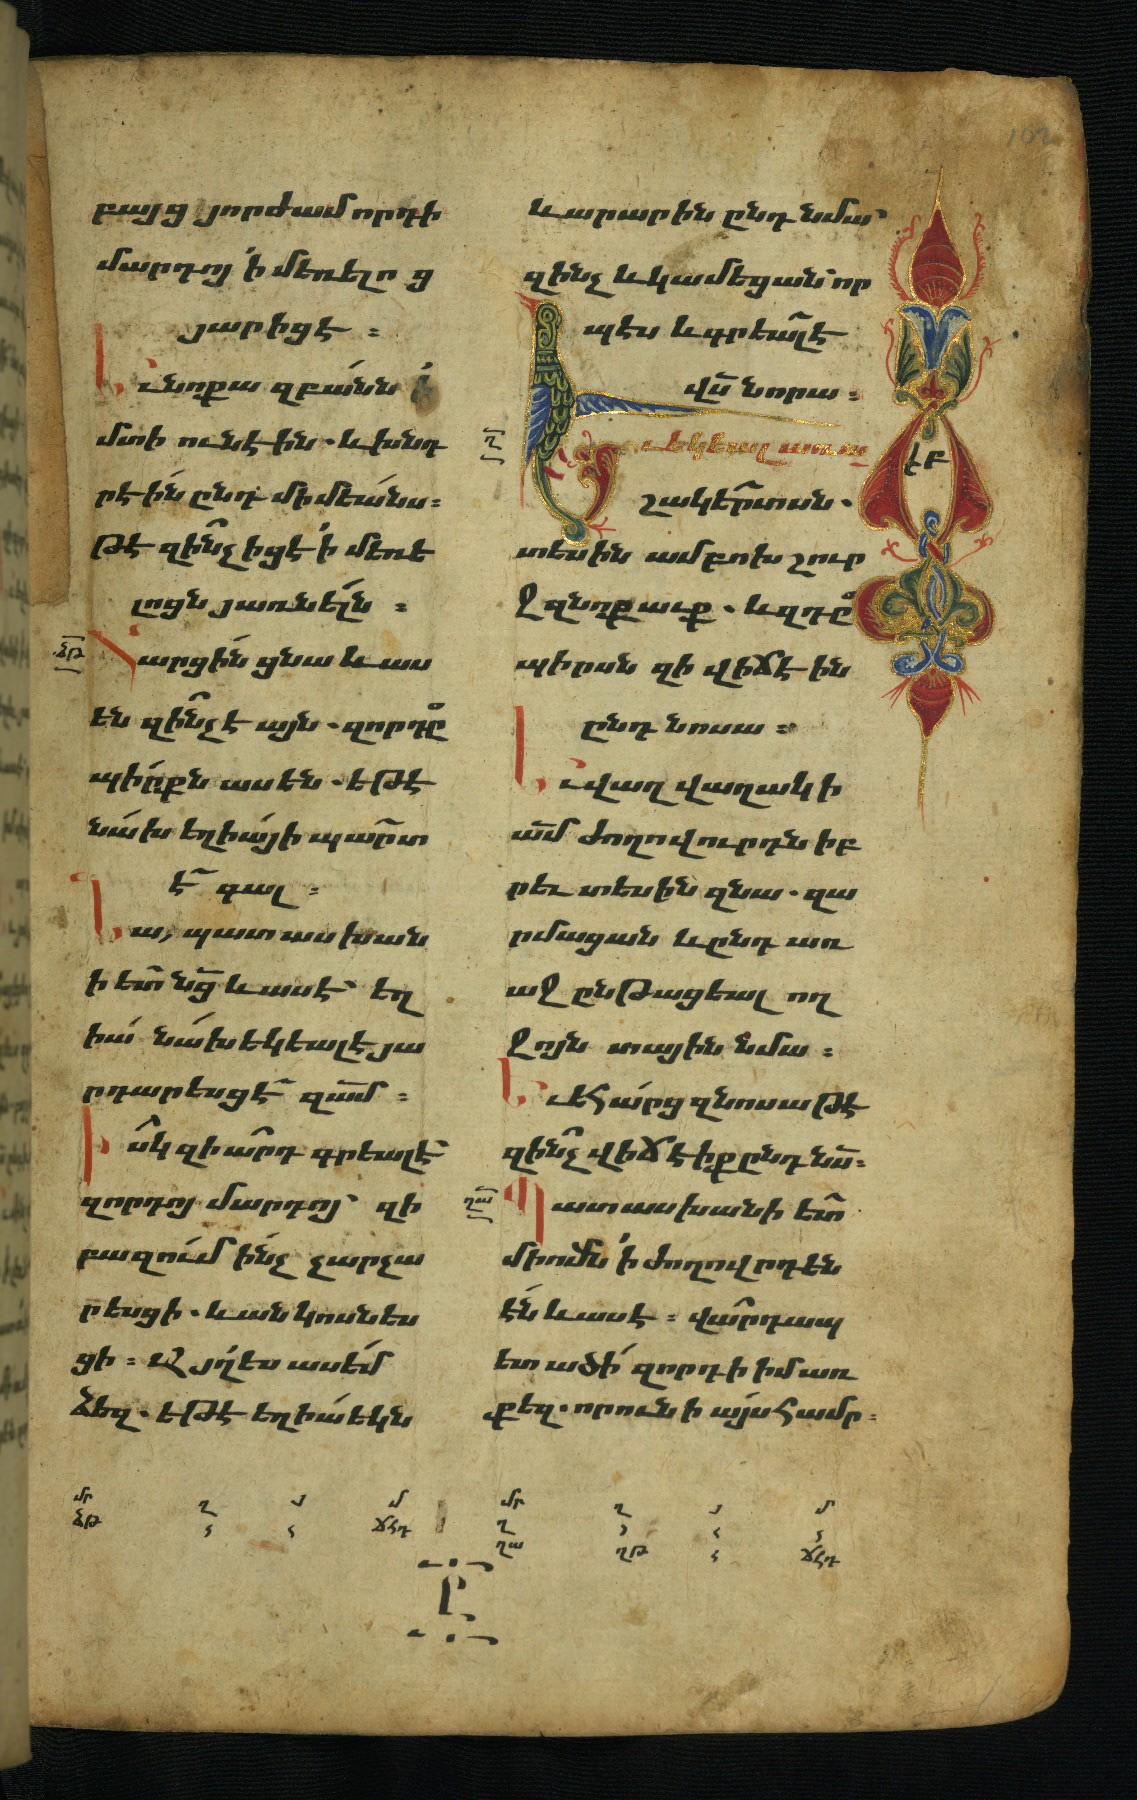 102
բայց յորժամ որդի
մարդոյ ՛ի մեռելոց
յարիցէ ։
Եւ նոքա զբանն ՛ի
մտի ունէին · և խնդ
րէին ընդ միմեանս ։
թէ զինչ իցէ ՛ի մեռե
լոցն յառնելն ։
Հարցին ցնա և աս
են զինչ է այն · զոր դը
պիրքն ասեն · եթէ
նախ եղիայի պարտ
է գալ ։
Նա, պատասխան
ի ետ նց և ասէ՝ եղ
իա նախ եկեալ է յա
րդարեսցէ զամ ։
Իսկ զիարդ գրեալ է՝
զորդոյ մարդոյ՝ զի
բազում ինչ չարչա
րեսցի · և անկոսնես
ցի ։ Այլ յղես ասեմ
ձեզ · եթէ եղիա եկն
և արարին ընդ նմա՝
զինչ և կամեցան՝ որ
պէս և գրեալ է
վն նորա ։
Եւ եկեալ առ ա
շակերտսն ·
տեսին ամբոխ շուր
ջ զնոքաւք · և զդը
պիրսն զի վիճէին
ընդ նոսա ։
Եւ վաղվաղակի
ամ ժողովուրդն իբ
րեւ տեսին զնա · զա
րմացան և ընդ առ
աջ ընթացեալ ող
ջոյն տային նմա ։
Եւ եհարց զնոսա թէ
զինչ վիճէիք ընդ նս ։
Պատասխանի ետ
մի ոմն ՛ի ժողովրդէն
էն և ասէ ։ վարդապ
ետ ածի զորդի իմ առ
քեզ · որ ունի այս համր ։
ձթ
ղ
ղա
իբ
մր ղ յ մ
ձթ ճհդ
մր ղ յ մ
ղ
ղա ղթ ճհդ